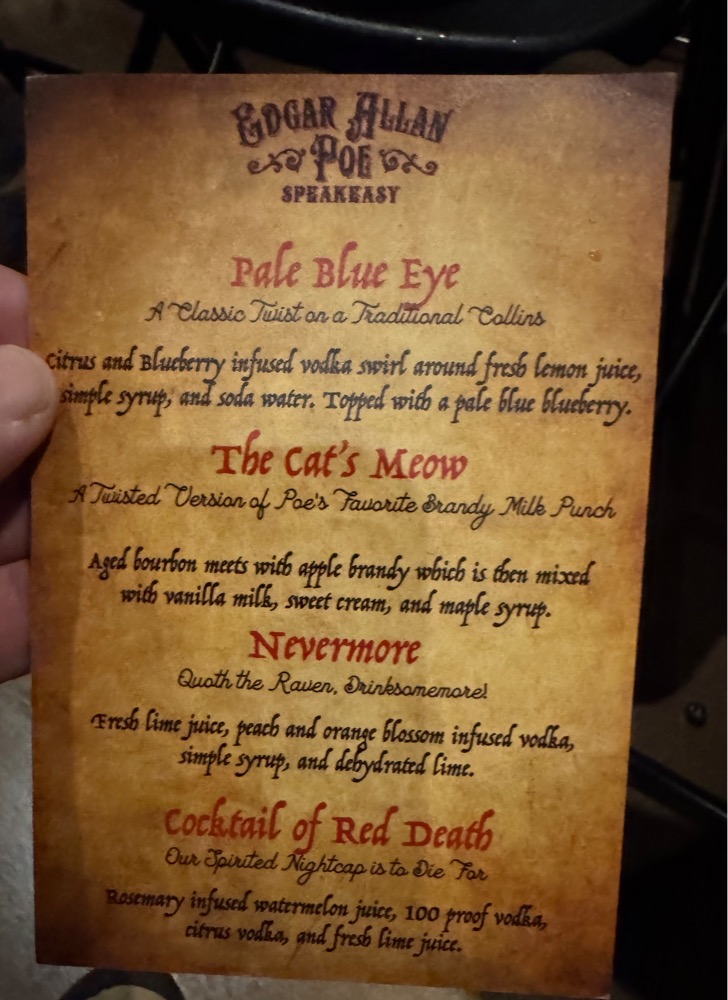 EDGAR ALLAN
POE
SPEAKEASY
Pale Blue Eye
A Classic Twist on a Traditional Collins
Citrus and Blueberry infused vodka swirl around fresh lemon juice,
simple syrup, and soda water. Topped with a pale blue blueberry.
The Cat's Meow
A Twisted Version of Poe's Favorite Brandy Milk Punch
Aged bourbon meets with apple brandy which is then mixed
with vanilla milk, sweet cream, and maple syrup.
Nevermore
Quoth the Raven, Drinksomemore!
Fresh lime juice, peach and orange blossom infused vodka,
simple syrup, and dehydrated lime.
Cocktail of Red Death
Our Spirited Nightcap is to Die For
Rosemary infused watermelon juice, 100 proof vodka,
citrus vodka, and fresh lime juice.